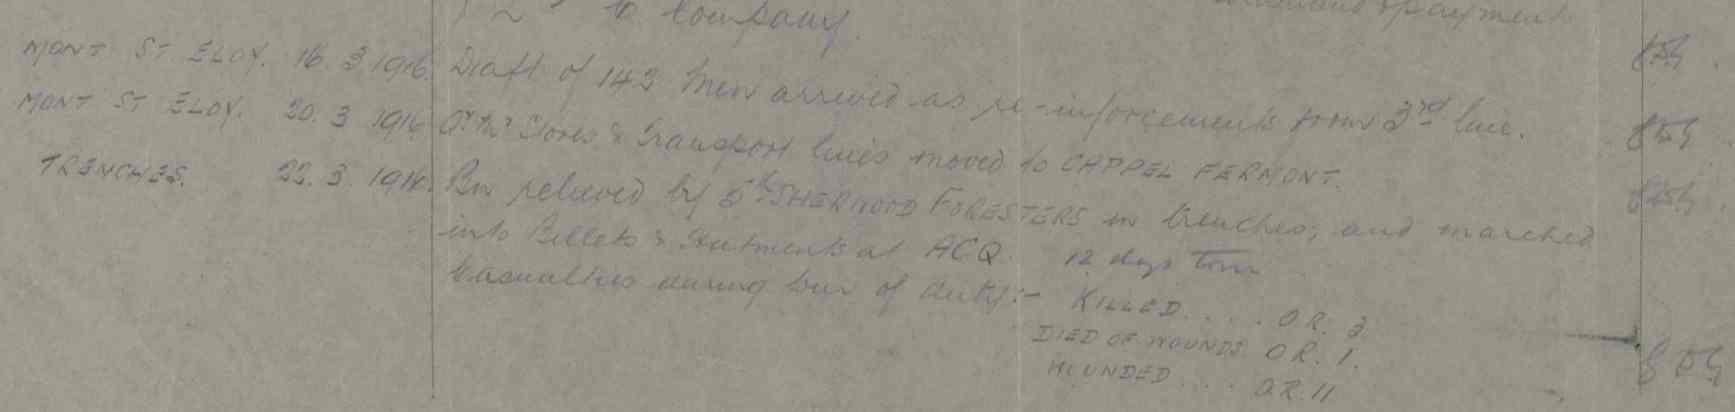 to Company.
payment
MONT ST ELOY. 16. 3 1916. Draft of 143 men arrived as re-inforcements from 3rd line.
MONT ST ELOY. 20. 3 1916 Qr Mrs Stores & Transport lines moved to CAPPEL FERMONT.
TRENCHES. 22. 3. 1916. Bn relieved by 5th SHERWOOD FORESTERS in trenches, and marched
into Billets & Hutments at ACQ. 12 days Tour
Casualties during tour of duty:- KILLED.... OR. 3
DIED OF WOUNDS OR. 1.
WOUNDED.... OR. 11